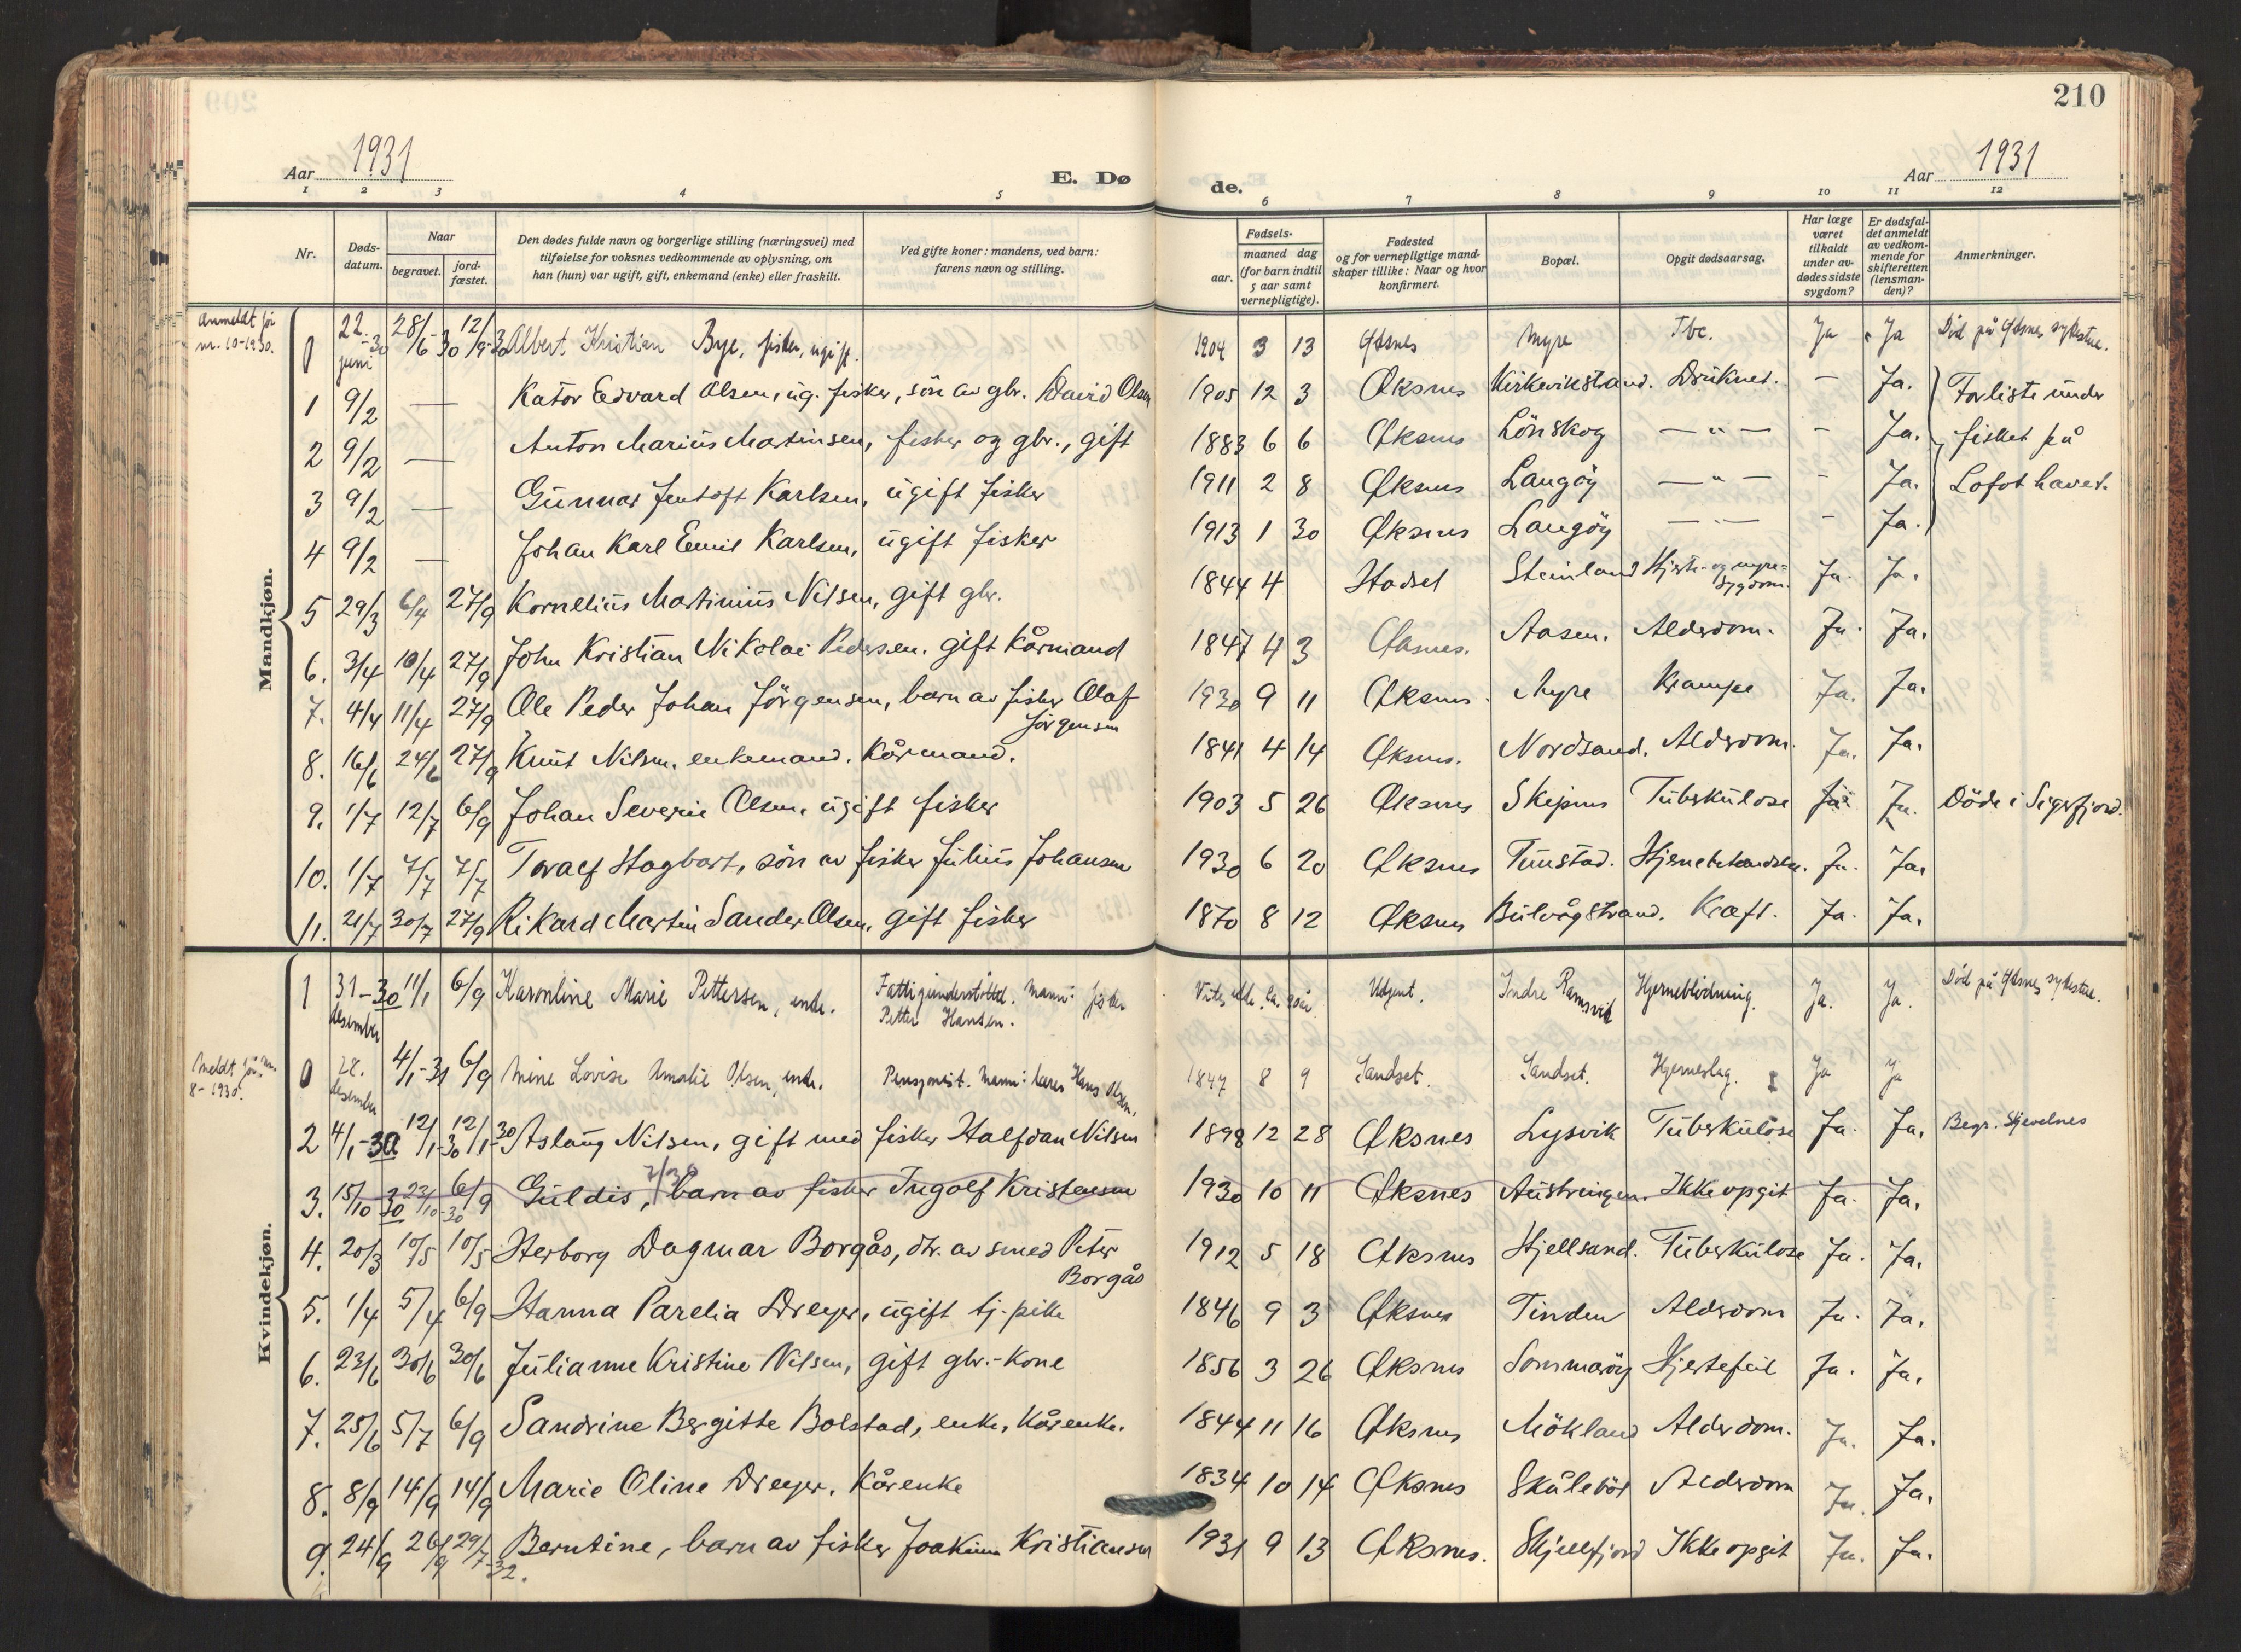 210
Aar 1931
E. Dø
de.
Aar 1931
1 2 3 4 5 6 7 8 9 10 11 12
Nr.
Døds-
datum.
Naar
begravet.
jord-
fæstet.
Den dødes fulde navn og borgerlige stilling (næringsvei) med
tilføielse for voksnes vedkommende av oplysning, om
han (hun) var ugift, gift, enkemand (enke) eller fraskilt.
Ved gifte koner: mandens, ved barn:
farens navn og stilling.
Fødsels-
aar.
maaned dag
(for barn indtil
5 aar samt
vernepligtige).
Fødested
og for vernepligtige mand-
skaper tillike: Naar og hvor
konfirmert.
Bopæl.
Opgit dødsaarsag.
Har læge
været
tilkaldt
under av-
dødes sidste
sygdom?
Er dødsfal-
det anmeldt
av vedkom-
mende for
skifteretten
(lensman-
den)?
Anmerkninger.
Mandkjøn.
Anmeldt for
nr. 10-1930.
0 22. juni -30 28/6-30 12/9-30 Albert Kristian Bye, fisker, ugift. 1904 3 13 Øksnes Myre Tbc. Ja Ja Död på Øksnes sykestue.
1 9/2 — Kator Edvard Olsen, ug. fisker, sön av gbr. David Olsen 1905 12 3 Øksnes Kirkevikstrand. Druknet. – Ja. Forliste under
2 9/2 — Anton Marius Martinsen, fisker og gbr., gift 1883 6 6 Øksnes Lönskog —"— – Ja. fisket på
3 9/2 — Gunnar Jentoft Karlsen, ugift fisker 1911 2 8 Øksnes Langöy —"— – Ja. Lofothavet.
4 9/2 — Johan Karl Emil Karlsen, ugift fisker 1913 1 30 Øksnes Langöy —"— – Ja.
5 29/3 6/4 27/9 Kornelius Martinius Nilsen, gift gbr. 1844 4 Hadsel Steinland Hjerte- og nyre-sygdom. Ja. Ja.
6. 3/4 10/4 27/9 John Kristian Nikolai Pedersen. gift kårmand 1847 4 3 Øksnes. Aasen. Alderdom. Ja. Ja.
7. 4/4 11/4 27/9 Ole Peder Johan Jörgensen, barn av fisker Olaf Jörgensen 1930 9 11 Øksnes. Myre Krampe Ja. Ja.
8. 16/6 24/6 27/9 Knut Nilsen, enkemand. Kårmand. 1841 4 14 Øksnes. Nordsand. Alderdom. Ja. Ja.
9. 1/7 12/7 6/9 Johan Severin Olsen, ugift fisker 1903 5 26 Øksnes Skipnes Tuberkulose Ja Ja. Döde i Sigerfjord.
10. 1/7 7/7 7/7 Toralf Hagbart, sön av fisker Julius Johansen 1930 6 20 Øksnes Tunstad. Hjernebetændelse. Ja. Ja.
11. 21/7 30/7 27/9 Rikard Martin Sander Olsen, gift fisker 1870 8 12 Øksnes Bulvågstrand. Kræft. Ja. Ja.
Kvindekjøn.
1 31-30 desember 11/1 6/9 Karonline Marie Pettersen, enke. Fattigunderstöttet. Mann: fisker Petter Hansen. Ukjent. Indre Ramsvik Hjerneblödning. Ja. Ja. Död på Øksnes sykestue.
Meldt for nr.
8-1930.
0 28. desember 4/1-31 6/9 Mine Lovise Amalie Olsen, enke. Pensjonist. Mann: lærer Hans Olsen. 1847 8 9 Sandset. Sandset. Hjerneslag. Ja Ja
2 4/1-30 12/1-30 12/1-30 Aslaug Nilsen, gift med fisker Halfdan Nilsen 1898 12 28 Øksnes Lysvik Tuberkulose Ja. Ja. Begr. Skjevelnes
3. 15/10 30 23/10-30 6/9 Guldis, barn av fisker Ingolf Kristensen 1930 10 11 Øksnes Austringen. Ikke opgit Ja. Ja.
4. 20/3 10/5 10/5 Herborg Dagmar Borgås, dtr. av smed Peter Borgås 1912 5 18 Øksnes Hjellsand. Tuberkulose Ja. Ja.
5. 1/4 5/4 6/9 Hanna Parelia Dreyer, ugift tj.pike 1846 9 3 Øksnes Tinden Alderdom Ja. Ja.
6. 23/6 30/6 30/6 Julianne Kristine Nilsen, gift gbr.-kone 1856 3 26 Øksnes Sommaröy Hjertefeil Ja. Ja.
7. 25/6 5/7 6/9 Sandrine Bergitte Bolstad, enke, kårenke. 1844 11 16 Øksnes Mökland Alderdom. Ja. Ja.
8. 8/9 14/9 14/9 Marie Oline Dreyer, Kårenke 1834 10 14 Øksnes Skålebör Alderdom Ja. Ja.
9. 24/9 26/9 29/7-32. Berntine, barn av fisker Joakim Kristiansen 1931 9 13 Øksnes. Skjellfjord Ikke opgit Ja. Ja.